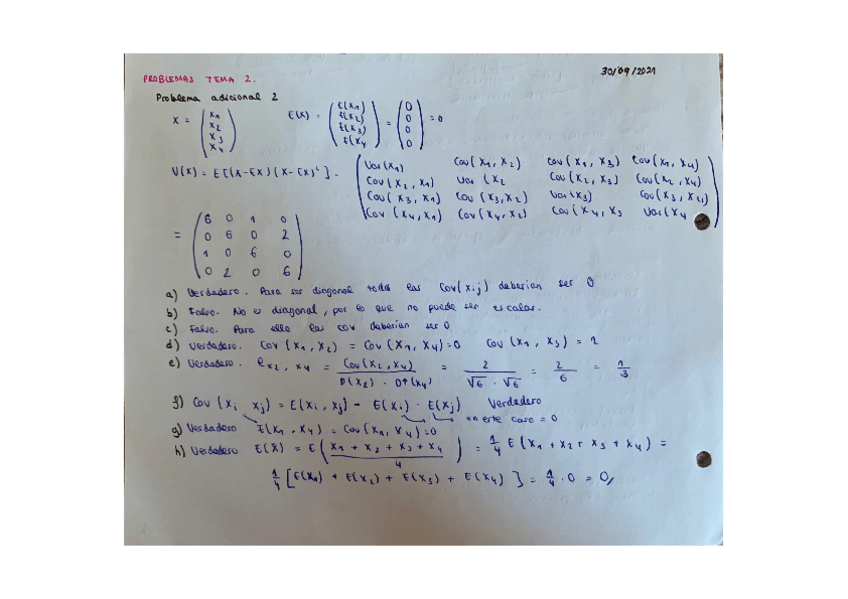 PROBLEMAS TEMA 2.
30/09/2021
Problema adicional 2
X = (x1 x2 x3 x4) E(X) = (E(x1) E(x2) E(x3) E(x4) = (0 0 0 0) = 0
V(X) = E[(X-EX)(X-EX)^t] =
Var(x1) Cov(x1, x2) Cov(x1, x3) Cov(x1, x4)
Cov(x2, x1) Var(x2 Cov(x2, x3) Cov(x2, x4)
Cov(x3, x1) Cov(x3,x2) Var(x3) Cov(x3, x4)
Cov(x4,x1) Cov(x4, x2) Cov(x4, x3 Var(x4
=
6 0 1 0
0 6 0 2
1 0 6 0
0 2 0 6
a) Verdadero. Para ser diagonal todas las Cov(xij) deberían ser 0
b) Falso. No es diagonal, por lo que no puede ser escalar.
c) Falso. Para ello las cov deberían ser 0
d) Verdadero. Cov(x1, x2) = Cov(x1, x4)=0 Cov(x1, x3) = 1
e) Verdadero. ρx2, x4 = Cov(x2, x4) / D(x2) · Dt(x4) = 2 / √6 · √6 = 2/6 = 1/3
f) Cov(xi xj) = E(xi, xj) - E(xi) · E(xj) Verdadero
en este caso = 0
g) Verdadero E(x1, x4) = Cov(x1, x4)=0
h) Verdadero E(X̄) = E(x1 + x2 + x3 + x4 / 4) = 1/4 E(x1 + x2 + x3 + x4) =
1/4 [E(x1) + E(x2) + E(x3) + E(x4)] = 1/4 · 0 = 0